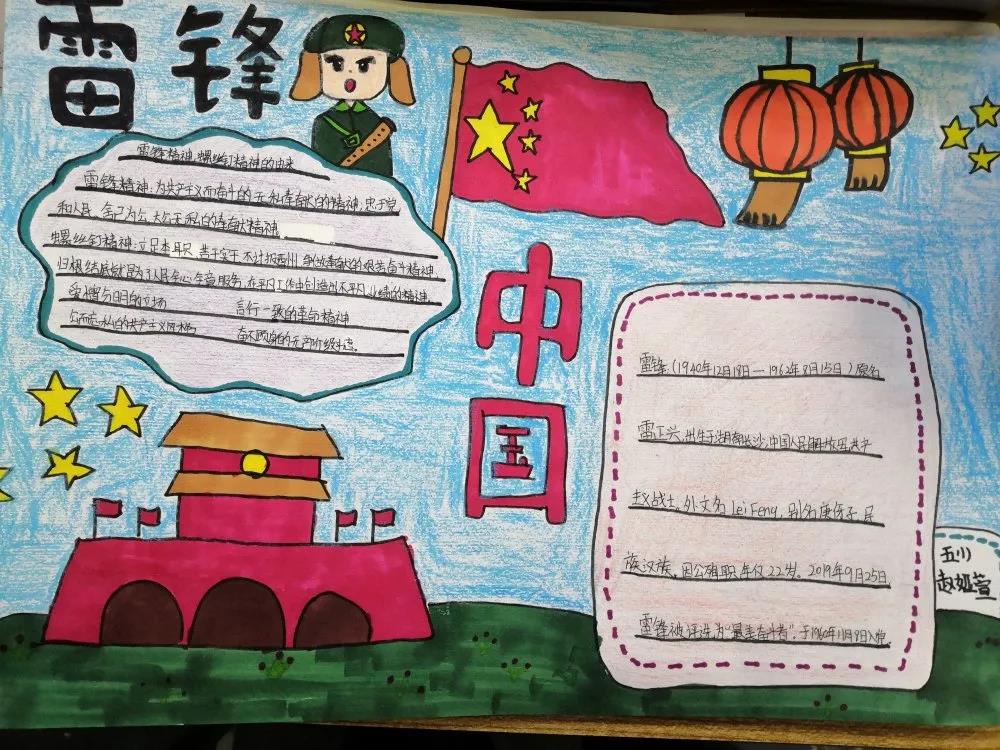 雷锋
雷锋精神、螺丝钉精神的由来
雷锋精神:为共产主义而奋斗的无私奉献的精神,忠于党
和人民、舍己为公、大公无私的奉献精神
螺丝钉精神:立足本职、苦干实干、不计报酬、争做奉献的艰苦奋斗精神
归根结底就是为了人民全心全意服务,在平凡工作中创造出不平凡业绩的精神
爱憎分明的立场 言行一致的革命精神
公而忘私的共产主义风格 奋不顾身的无产阶级斗志。
中
国
雷锋(1940年12月18日—1962年8月15日)原名
雷正兴,出生于湖南长沙,中国人民解放军共产
主义战士。外文名 Lei Feng,别名庚伢子,民
族汉族,因公殉职年仅22岁。2019年9月25日,
雷锋被评选为“最美奋斗者”,于1960年11月8日入党
五(1)
赵娅萱